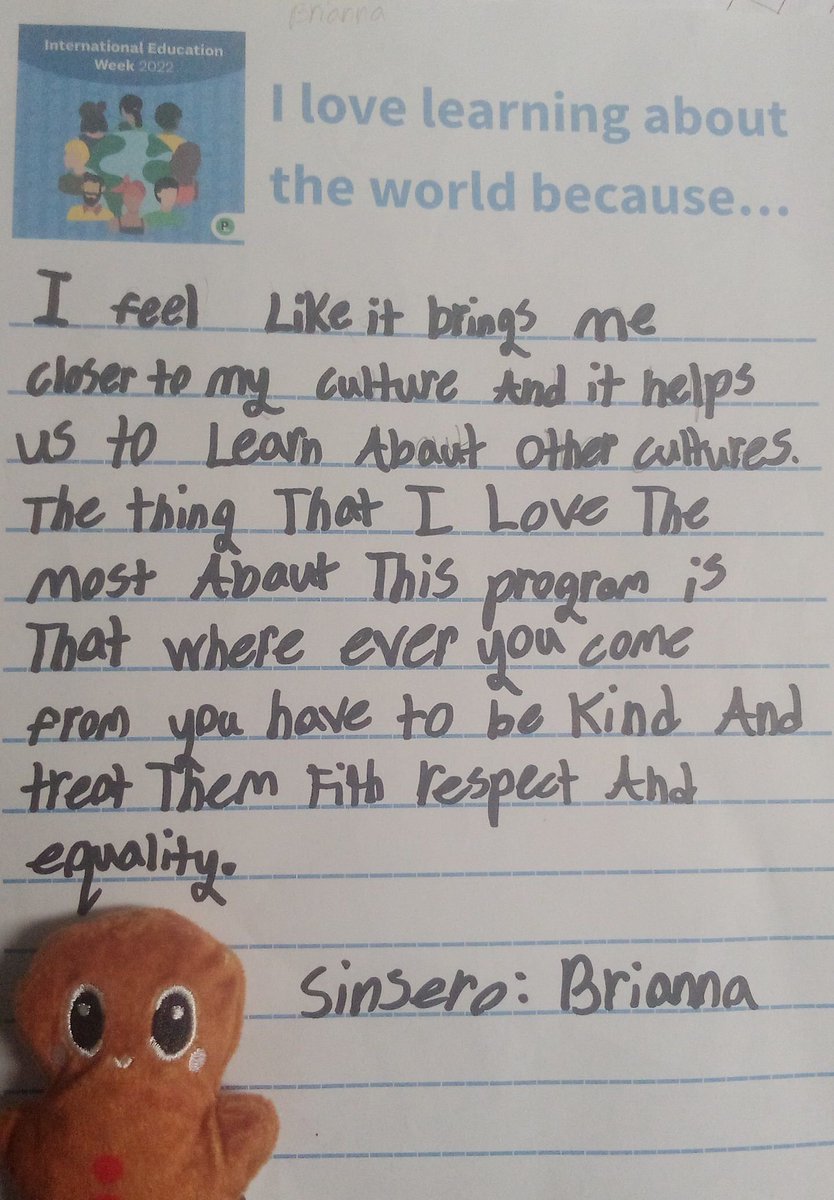 Brianna
International Education
Week 2022
P
I love learning about
the world because...
I feel Like it brings me
closer to my culture And it helps
us to Learn About other cultures.
The thing That I Love The
most About This program is
That where ever you come
from you have to be Kind And
treat Them Fith respect And
equality.
Sinsero: Brianna